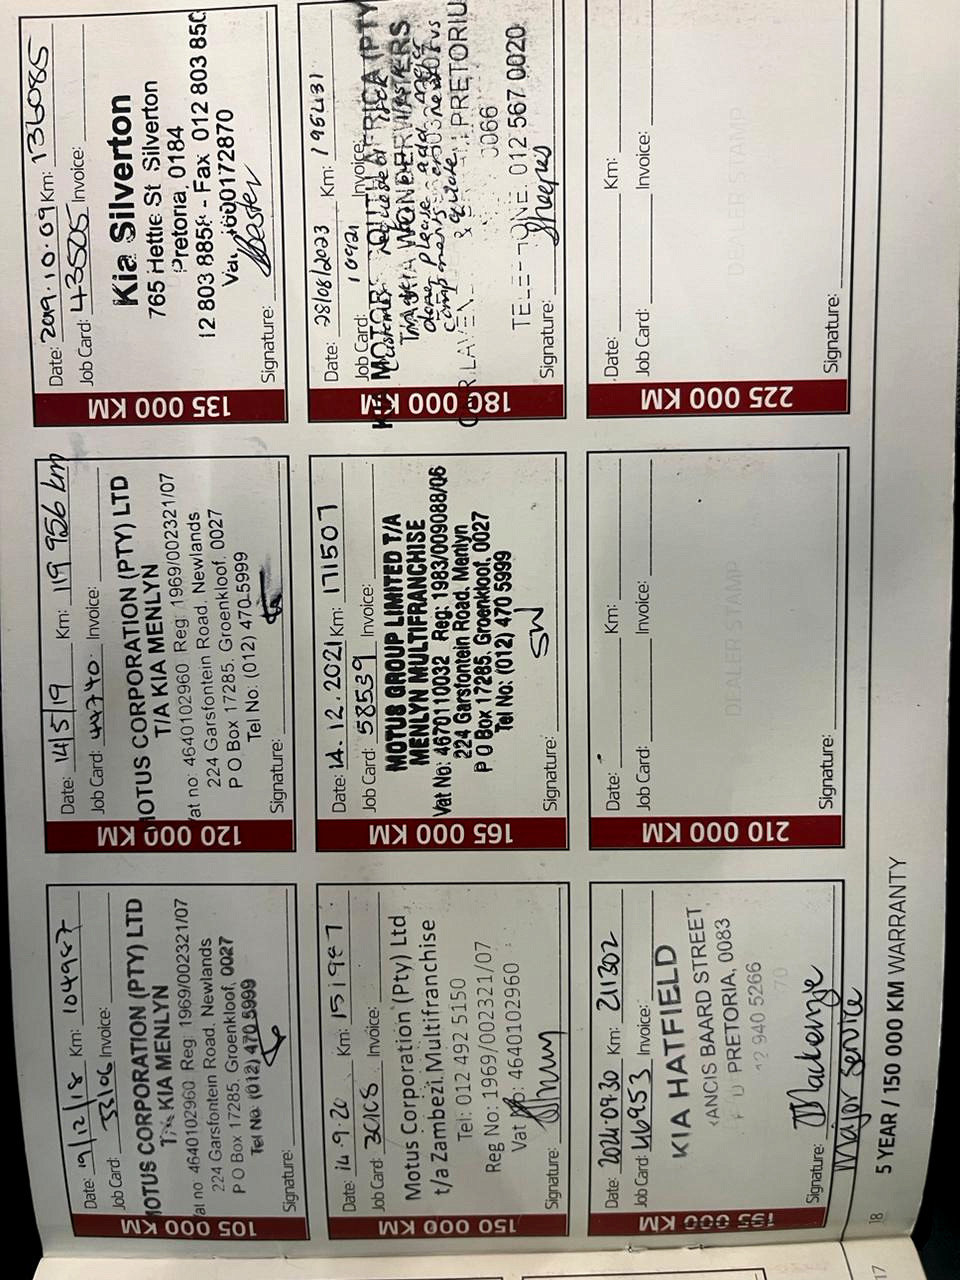 105 000 KM
Date: 19/12/18 Km: 104987
Job Card: 33106 Invoice:
MOTUS CORPORATION (PTY) LTD
T/A KIA MENLYN
Vat no 4640102960 Reg: 1969/002321/07
224 Garsfontein Road. Newlands
P O Box 17285. Groenkloof, 0027
Tel No: (012) 470 5999
Signature:
120 000 KM
Date: 14/5/19 Km: 119 956 km
Job Card: 44740. Invoice:
MOTUS CORPORATION (PTY) LTD
T/A KIA MENLYN
Vat no: 4640102960 Reg: 1969/002321/07
224 Garsfontein Road. Newlands
P O Box 17285. Groenkloof. 0027
Tel No: (012) 470 5999
Signature:
135 000 KM
Date: 2019.10.09 Km: 136085
Job Card: 43505 Invoice:
Kia Silverton
765 Hettie St Silverton
Pretoria, 0184
12 803 885 - Fax 012 803 850
Signature:
150 000 KM
Date: 14.9.20 Km: 151987
Job Card: Invoice:
Motus Corporation (Pty) Ltd
t/a Zambezi Multifranchise
Tel: 012 492 5150
Reg No: 1969/002321/07
Vat No: 4640102960
Signature:
165 000 KM
Date: 14.12.2021 Km: 171507
Job Card: 58539 Invoice:
MOTUS GROUP LIMITED T/A
MENLYN MULTIFRANCHISE
Vat No: 4670110032 Reg: 1983/009088/06
224 Garsfontein Road. Menlyn
P O Box 17285. Groenkloof, 0027
Tel No: (012) 470 5999
Signature: SW
180 000 KM
Date: 28/08/2023 Km: 196431
Job Card: 10921 Invoice:
KIA MOTORS SOUTH AFRICA (PTY
T/A KIA WONDERBOOM
done please add
PRETORIU
0066
TELEPHONE 012 567 0020
Signature:
195 000 KM
Date: 2024.09.30 Km: 211302
Job Card: 46953 Invoice:
KIA HATFIELD
ANCIS BAARD STREET
PRETORIA, 0083
12 940 5266
Signature: Mackenzie
Major Service
210 000 KM
Date: Km:
Job Card: Invoice:
DEALER STAMP
Signature:
225 000 KM
Date: Km:
Job Card: Invoice:
DEALER STAMP
Signature:
18 5 YEAR / 150 000 KM WARRANTY
17